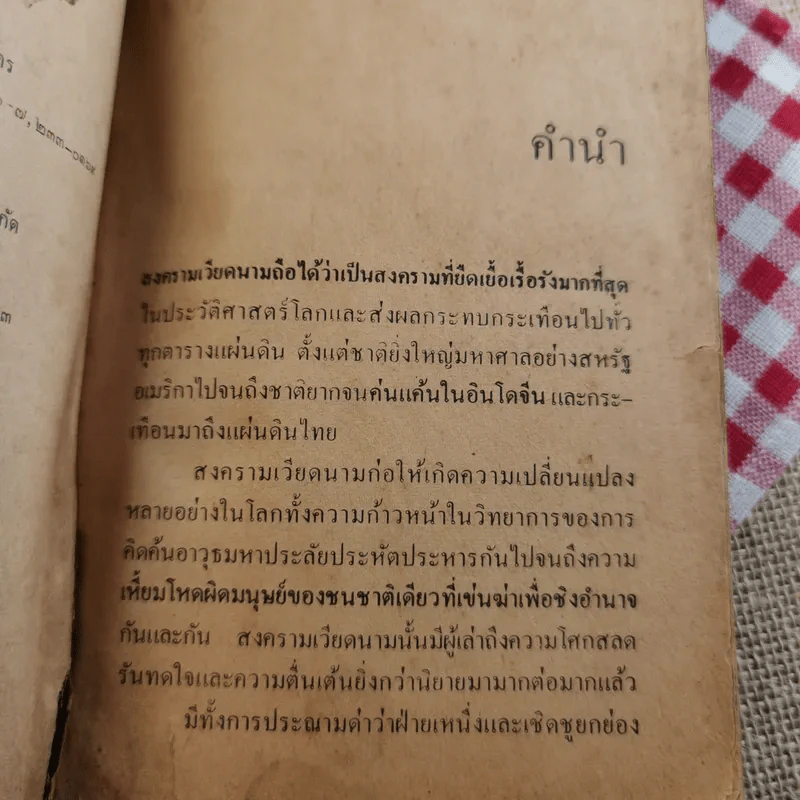 กร
-๗, ๒๓๓-๐๑๑๙
กัด
๓
คำนำ
สงครามเวียดนามถือได้ว่าเป็นสงครามที่ยืดเยื้อเรื้อรังมากที่สุด
ในประวัติศาสตร์โลกและส่งผลกระทบกระเทือนไปทั่ว
ทุกตารางแผ่นดิน ตั้งแต่ชาติยิ่งใหญ่มหาศาลอย่างสหรัฐ
อเมริกาไปจนถึงชาติยากจนค่นแค้นในอินโดจีน และกระ-
เทือนมาถึงแผ่นดินไทย
สงครามเวียดนามก่อให้เกิดความเปลี่ยนแปลง
หลายอย่างในโลกทั้งความก้าวหน้าในวิทยาการของการ
คิดค้นอาวุธมหาประลัยประหัตประหารกันไปจนถึงความ
เหี้ยมโหดผิดมนุษย์ของชนชาติเดียวที่เข่นฆ่าเพื่อชิงอำนาจ
กันและกัน สงครามเวียดนามนั้นมีผู้เล่าถึงความโศกสลด
รันทดใจและความตื่นเต้นยิ่งกว่านิยายมามากต่อมากแล้ว
มีทั้งการประณามด่าว่าฝ่ายเหนึ่งและเชิดชูยกย่อง